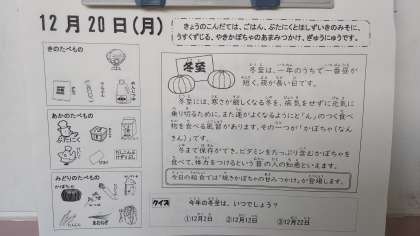 12月20日(月)
きょうのこんだては、ごはん、ぶたにくとはしずいきのみそに、
うすくずじる、やきかぼちゃのあまみつかけ、ぎゅうにゅうです。
きのたべもの
あかのたべもの
ぶたにく
みどりのたべもの
かぼちゃ
冬至
冬至は、一年のうちで一番昼が
短く、夜が長い日です。
冬至には、寒さが厳しくなる冬を、病気をせずに元気に
乗り切るために、また運がよくなるようにと「ん」のつく食べ
物を食べる風習があります。その一つが「かぼちゃ(なんき
ん)」です。
冬まで保存ができ、ビタミンをたっぷり含むかぼちゃを
食べて、体力をつけるという昔の人の知恵といえます。
今日の給食では「焼きかぼちゃの甘みつかけ」が登場します。
クイズ
今年の冬至は、いつでしょう?
①12月2日 ②12月12日 ③12月22日